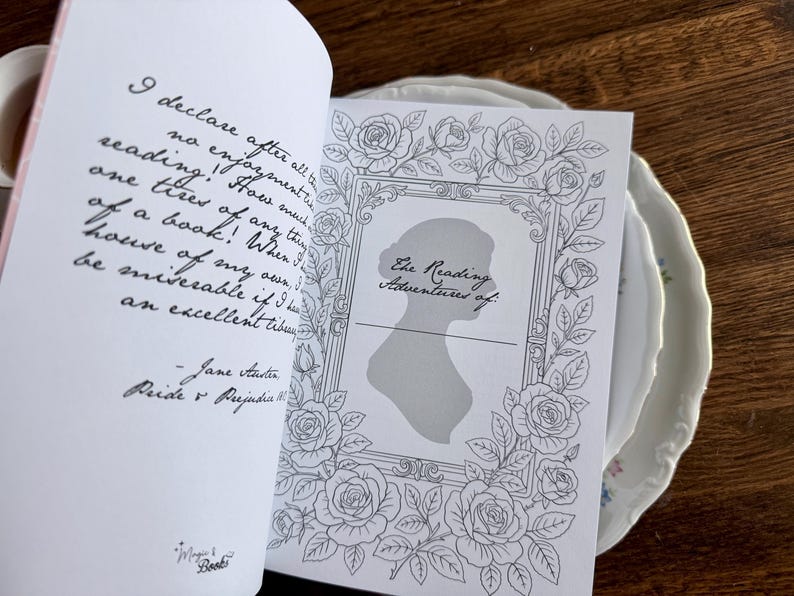 I declare after all
no enjoyment
reading! How much
one tires of any thing
of a book! When I
house of my own, I
be miserable if I
an excellent
- Jane Austen,
Pride & Prejudice
Magic &
Books
The Reading
Adventures of: